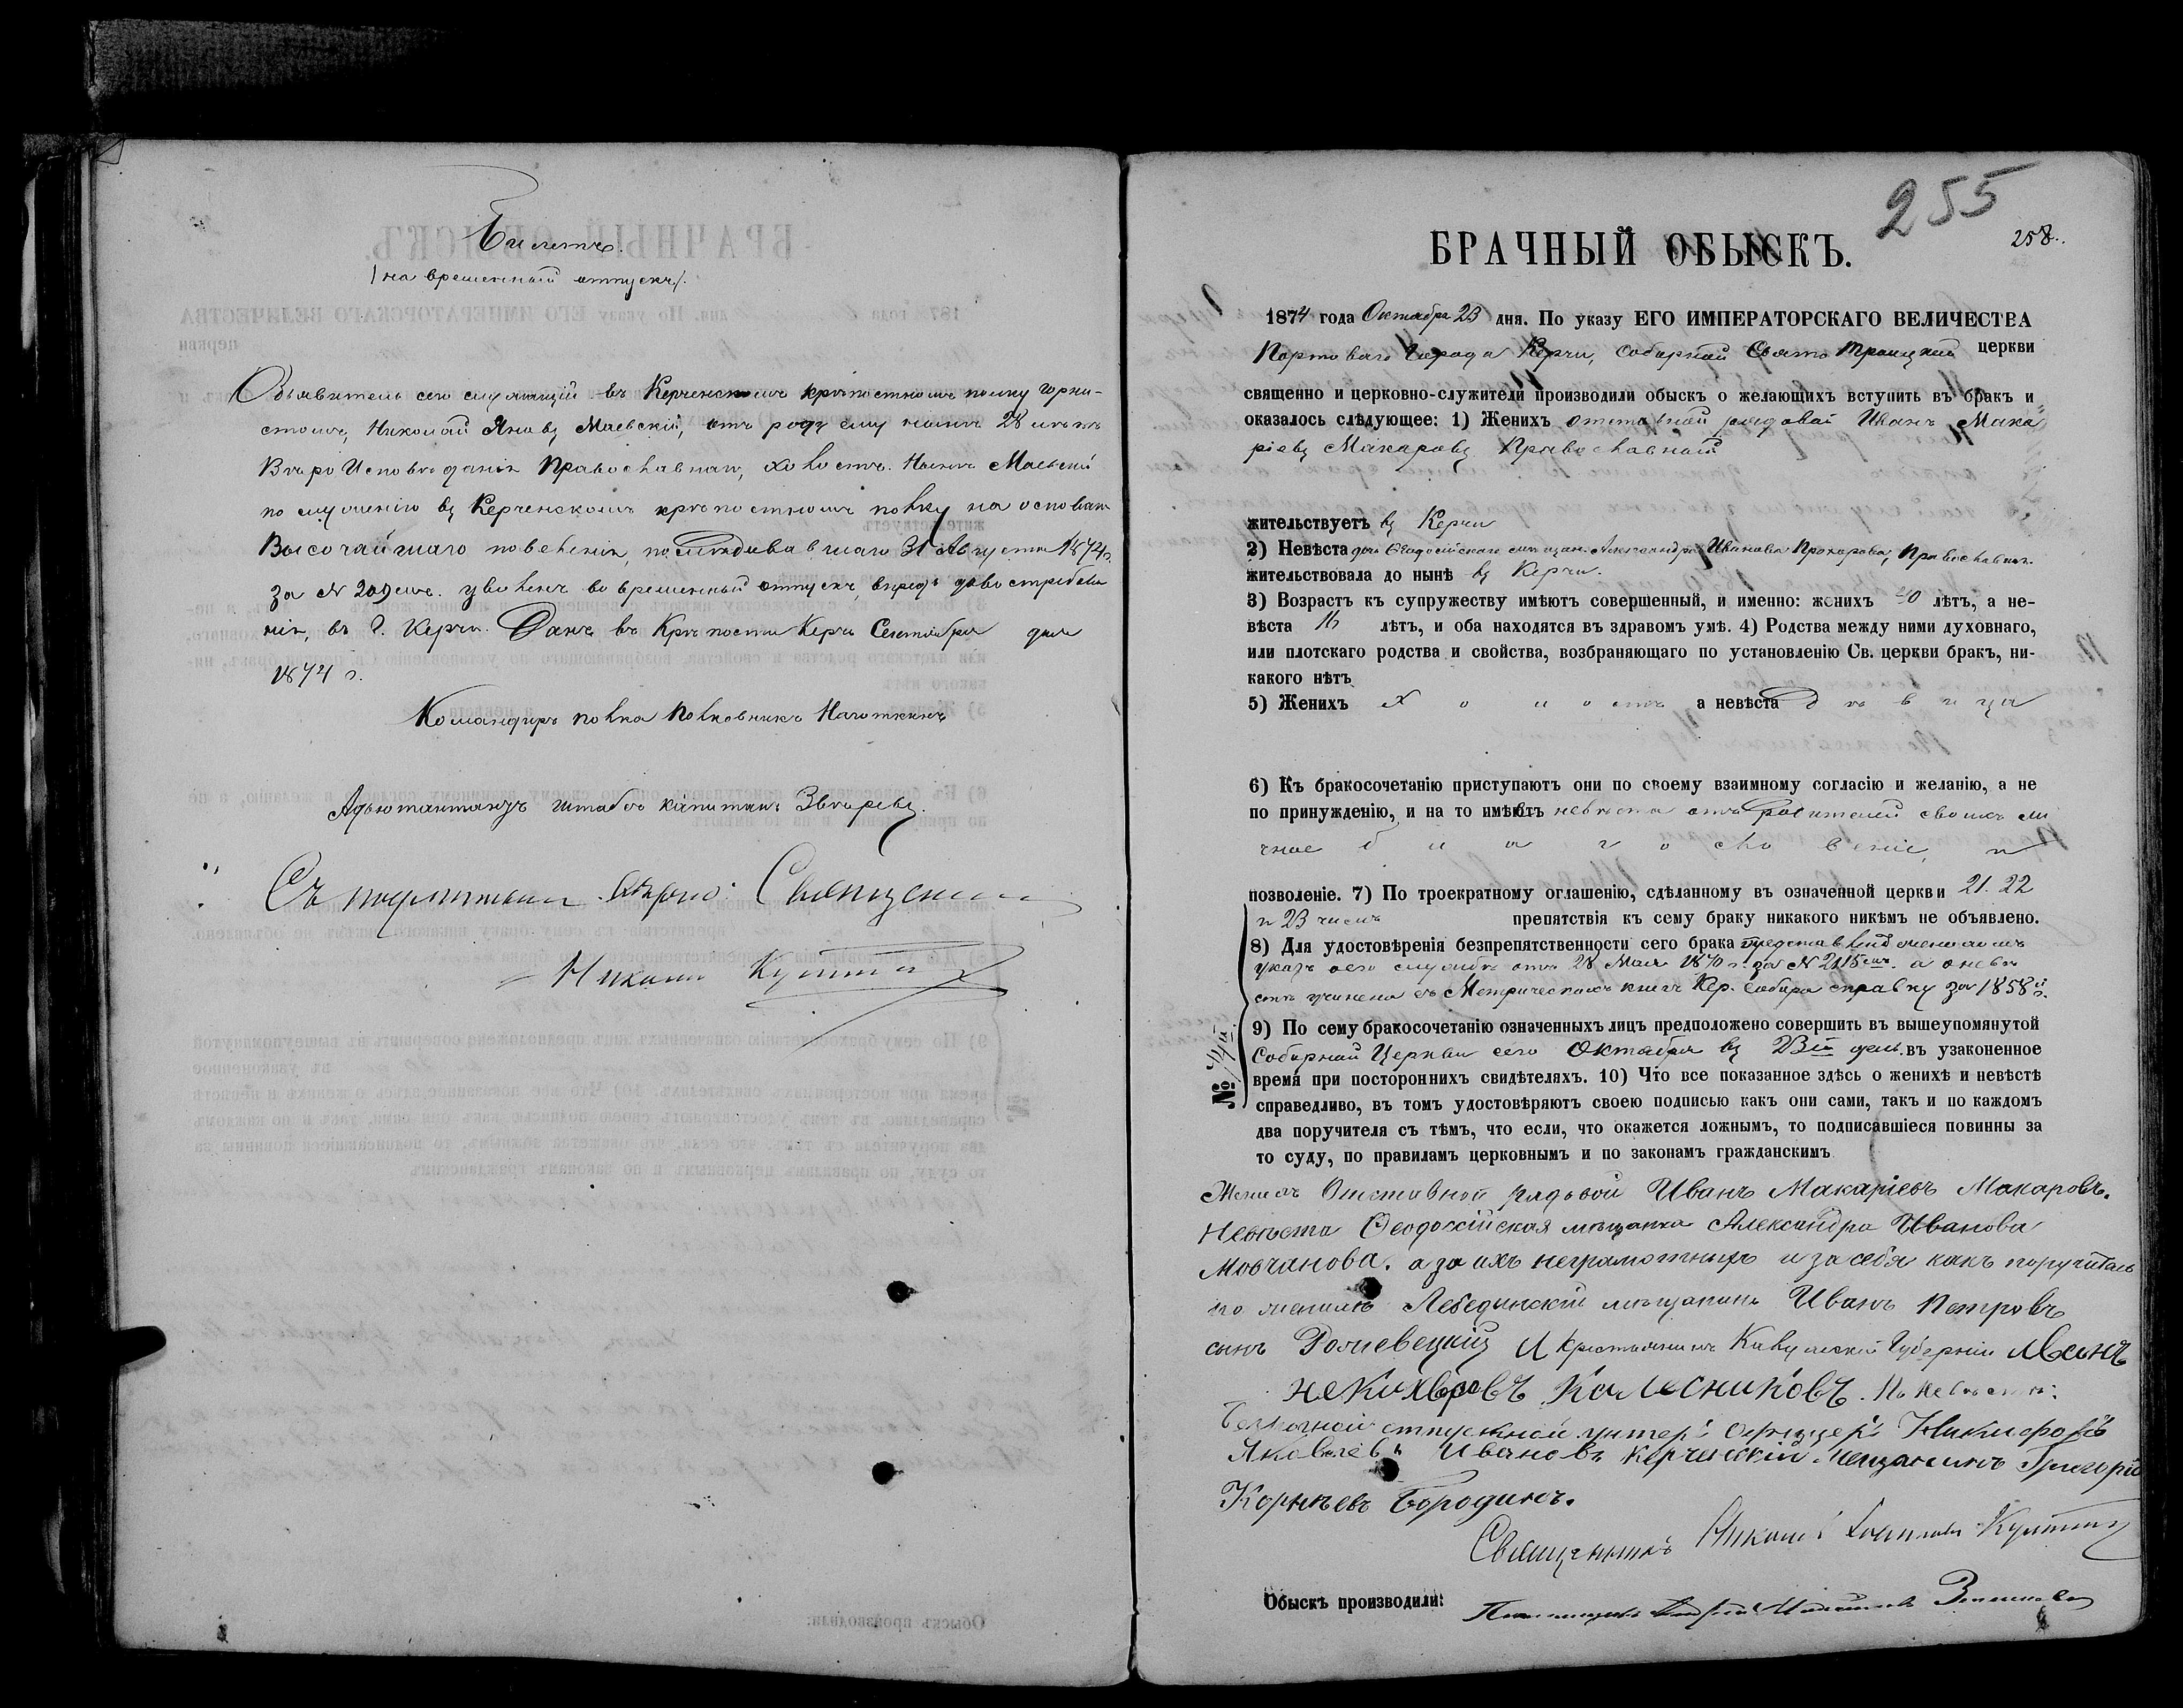 Билетъ.
/на временный отпускъ/.
Объявитель сего служащій въ Керченскомъ крѣпостномъ полку горни-
стомъ, Николай Маевскій, отъ роду ему нынѣ 28 лѣтъ
Вѣроисповѣданія Православнаго, холостъ. Маевскій
по служенію въ Керченскомъ крѣпостномъ полку на основаніи
Высочайшаго повеленія, послѣдовавшаго 31 Августа 1874 г.
за № уволенъ во временный отпускъ, впредь до востребова
нія, въ г. Керчи. Данъ въ Крѣпости Керчи Сентября дня
1874 г.
Командиръ полка Полковникъ
Адъютантъ штабсъ капитанъ Звѣревъ.
Съ подлиннымъ вѣрно: Священникъ
Николай
255
258.
БРАЧНЫЙ ОБЫСКЪ.
1874 года Октября 23 дня. По указу ЕГО ИМПЕРАТОРСКАГО ВЕЛИЧЕСТВА
Портоваго Города Керчи, Соборной Свято Троицкой церкви
священно и церковно-служители производили обыскъ о желающихъ вступить въ бракъ и
оказалось слѣдующее: 1) Женихъ отставной рядовой Иванъ Мака
ріевъ Макаровъ Православный
жительствуетъ въ Керчи
2) Невѣста дочь Ѳеодосійскаго мѣщан. Александра Иванова Прохорова, Православная
жительствовала до нынѣ въ Керчи.
3) Возрастъ къ супружеству имѣютъ совершенный, и именно: женихъ лѣтъ, а не-
вѣста 16 лѣтъ, и оба находятся въ здравомъ умѣ. 4) Родства между ними духовнаго,
или плотскаго родства и свойства, возбраняющаго по установленію Св. церкви бракъ, ни-
какого нѣтъ
5) Женихъ холостъ а невѣста дѣвица
6) Къ бракосочетанію приступаютъ они по своему взаимному согласію и желанію, а не
по принужденію, и на то имѣютъ невѣста отъ родителей своихъ ли
чное благословеніе, и
позволеніе. 7) По троекратному оглашенію, сдѣланному въ означенной церкви 21. 22
и 23 числъ препятствія къ сему браку никакого никѣмъ не объявлено.
8) Для удостовѣренія безпрепятственности сего брака представленъ женихомъ
указъ о его службѣ отъ 28 Мая 1870 г. за № 2115 а о невѣ
стѣ учинена въ Метрическихъ книгъ Кер. Собора справку за 1858 г.
9) По сему бракосочетанію означенныхъ лицъ предположено совершить въ вышеупомянутой
Соборной Церкви сего Октября въ 23й день въ узаконенное
№
время при постороннихъ свидѣтеляхъ. 10) Что все показанное здѣсь о женихѣ и невѣстѣ
справедливо, въ томъ удостовѣряютъ своею подписью какъ они сами, такъ и по каждомъ
два поручителя съ тѣмъ, что если, что окажется ложнымъ, то подписавшіеся повинны за
то суду, по правиламъ церковнымъ и по законамъ гражданскимъ
Женихъ Отставной рядовой Иванъ Макаріевъ Макаровъ.
Невѣста Ѳеодосійская мѣщанка Александра Иванова
Мовчанова. а за ихъ неграмотныхъ и за себя какъ поручитель
по женихѣ Лебединскій мѣщанинъ Иванъ Петровъ
сынъ и Крестьянинъ Калужской Губерніи
Калесниковъ. По невѣстѣ:
отпускной унтеръ офицеръ Никифоръ
Яковлевъ Ивановъ Керченскій мещанинъ Григорій
Корнѣевъ Бородинъ.
Священникъ Николай
Обыскъ производили: